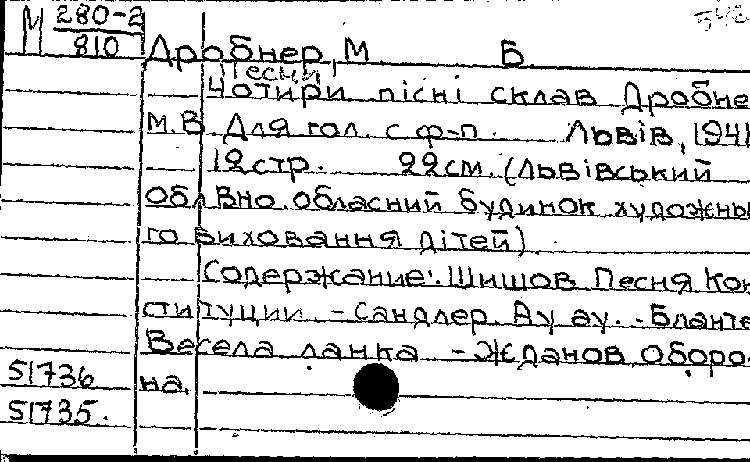 М 280-2
810
Дробнер, М. Б.
[Песни]
Чотири пісні склав Дробне
М.В. Для гол. с ф-п. Львів, 1941
12 стр. 22 см. (Львівський
Обл Вно. обласний будинок художньо
го виховання дітей).
Содержание: Шишов Песня Кон
ституции. - Сандлер. Ау ау. - Бланте
Весела ланка - Жданов, Оборо
51736 на.
51735.